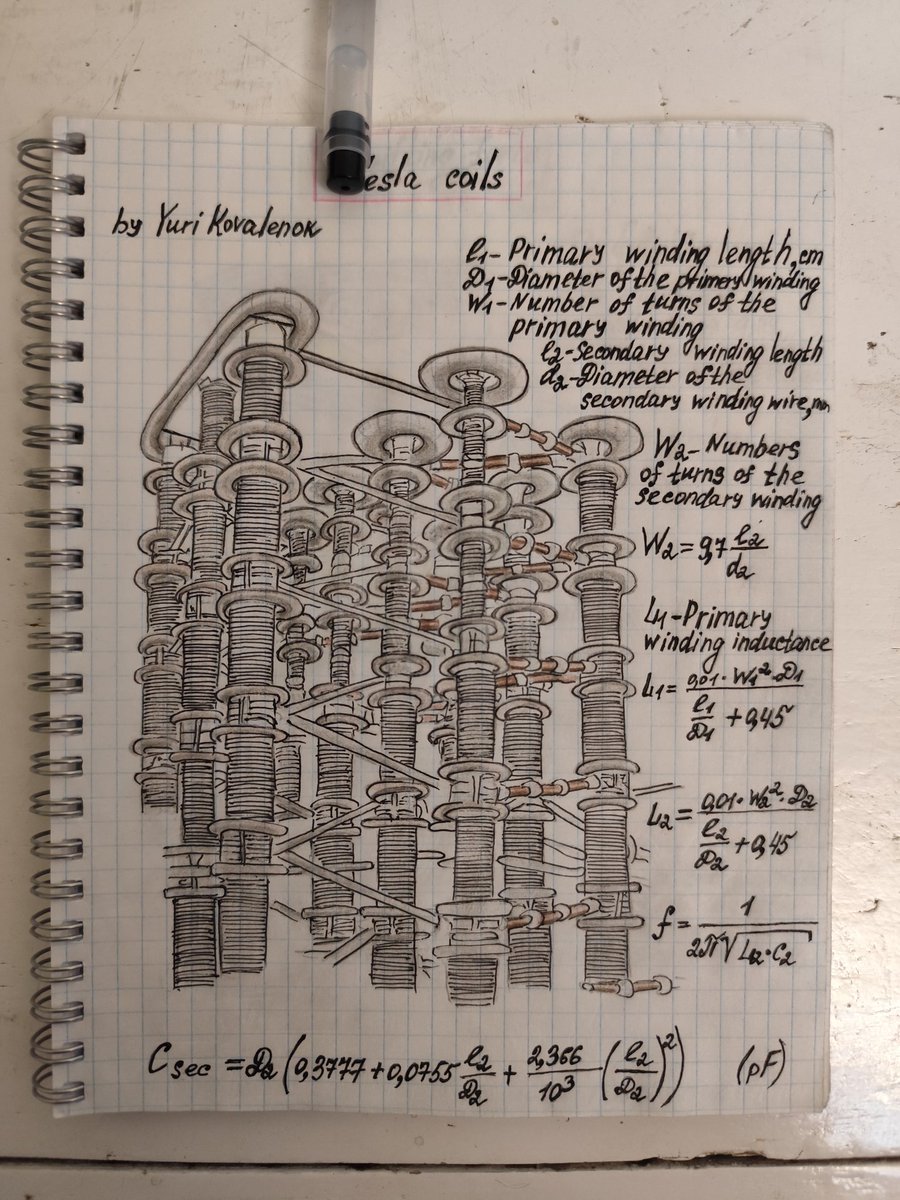 esla coils
by Yuri Kovalenok
l1-Primary winding length, cm
D1-Diameter of the primery winding
W1-Number of turns of the
primary winding
l2-Secondary winding length
d2-Diameter of the
secondary winding wire, mm
W2-Numbers
of turns of the
secondary winding
W2 = 9,7 l2/d2
L1-Primary
winding inductance
L1 = 0,01·W1²·D1 / (l1/D1 + 0,45)
L2 = 0,01·W2²·D2 / (l2/D2 + 0,45)
f = 1 / (2π√(L2·C2))
Csec = D2(0,3777+0,0755 l2/D2 + 2,366/10³ (l2/D2)²) (pF)